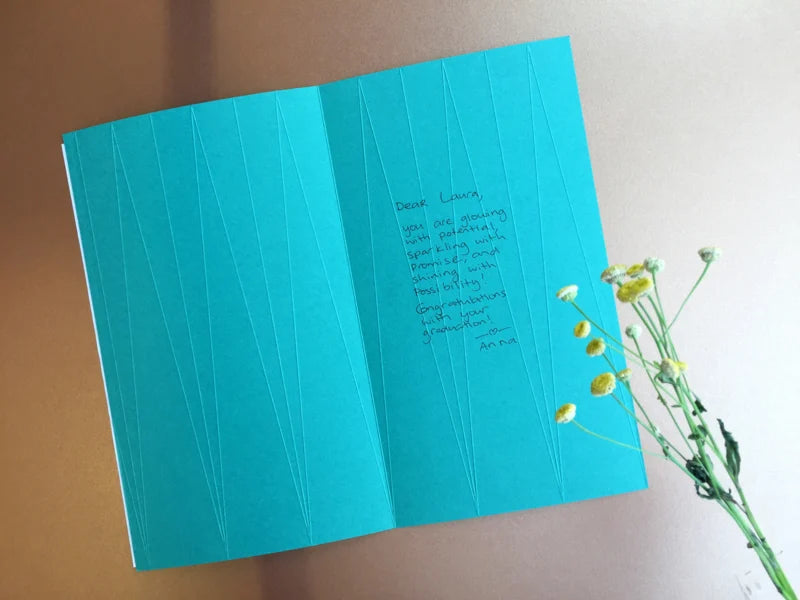 Dear Laura,
you are glowing
with potential,
sparkling with
promise, and
shining with
possibility!
Congratulations
with your
graduation!
Anna